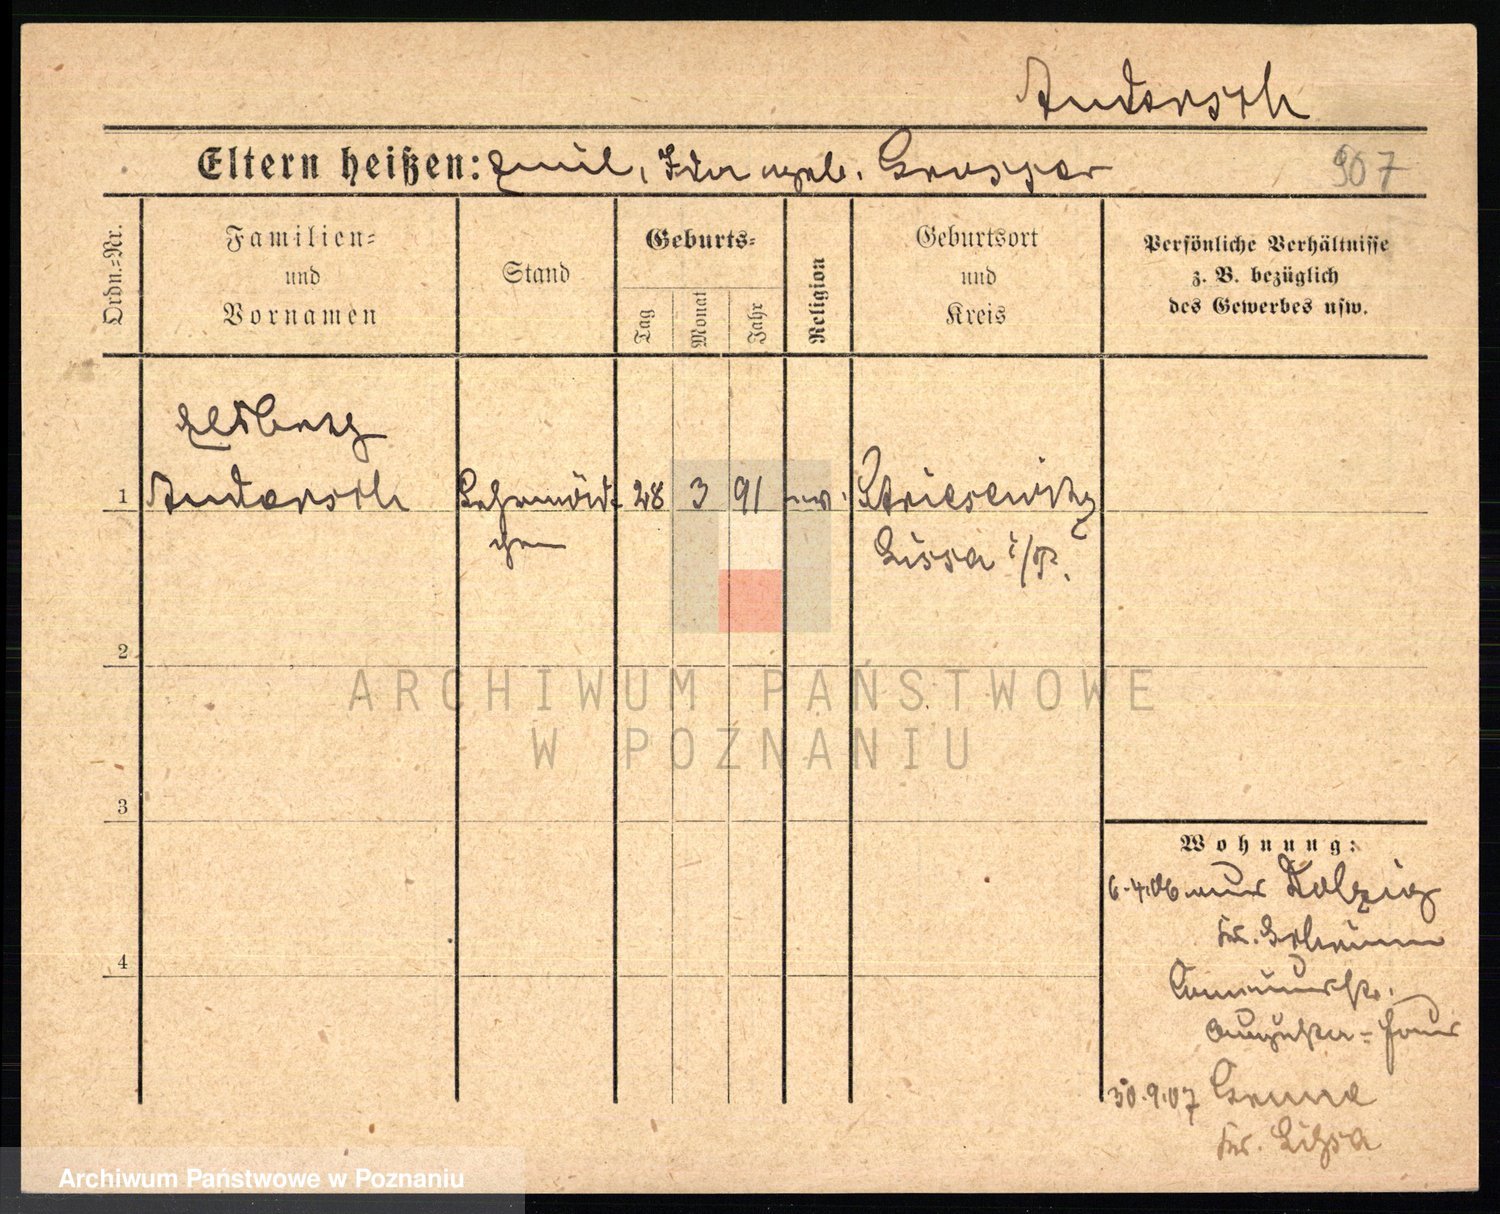 Andersch
Eltern heißen: Emil, Ida geb. Grosser
907
Ordn.-Nr.
Familien-
und
Vornamen
Stand
Geburts-
Tag
Monat
Jahr
Religion
Geburtsort
und
Kreis
Persönliche Verhältnisse
z. B. bezüglich
des Gewerbes usw.
Hedwig
1 Andersch Lehrmäd- 28 3 91 ev. Striesewitz
chen Lissa i/P.
2
3
4
Wohnung:
6.4.06 aus Dolzig
Kr. Schrimm
Augusta-
30.9.07 Grune
Kr. Lissa
ARCHIWUM PAŃSTWOWE
W POZNANIU
Archiwum Państwowe w Poznaniu